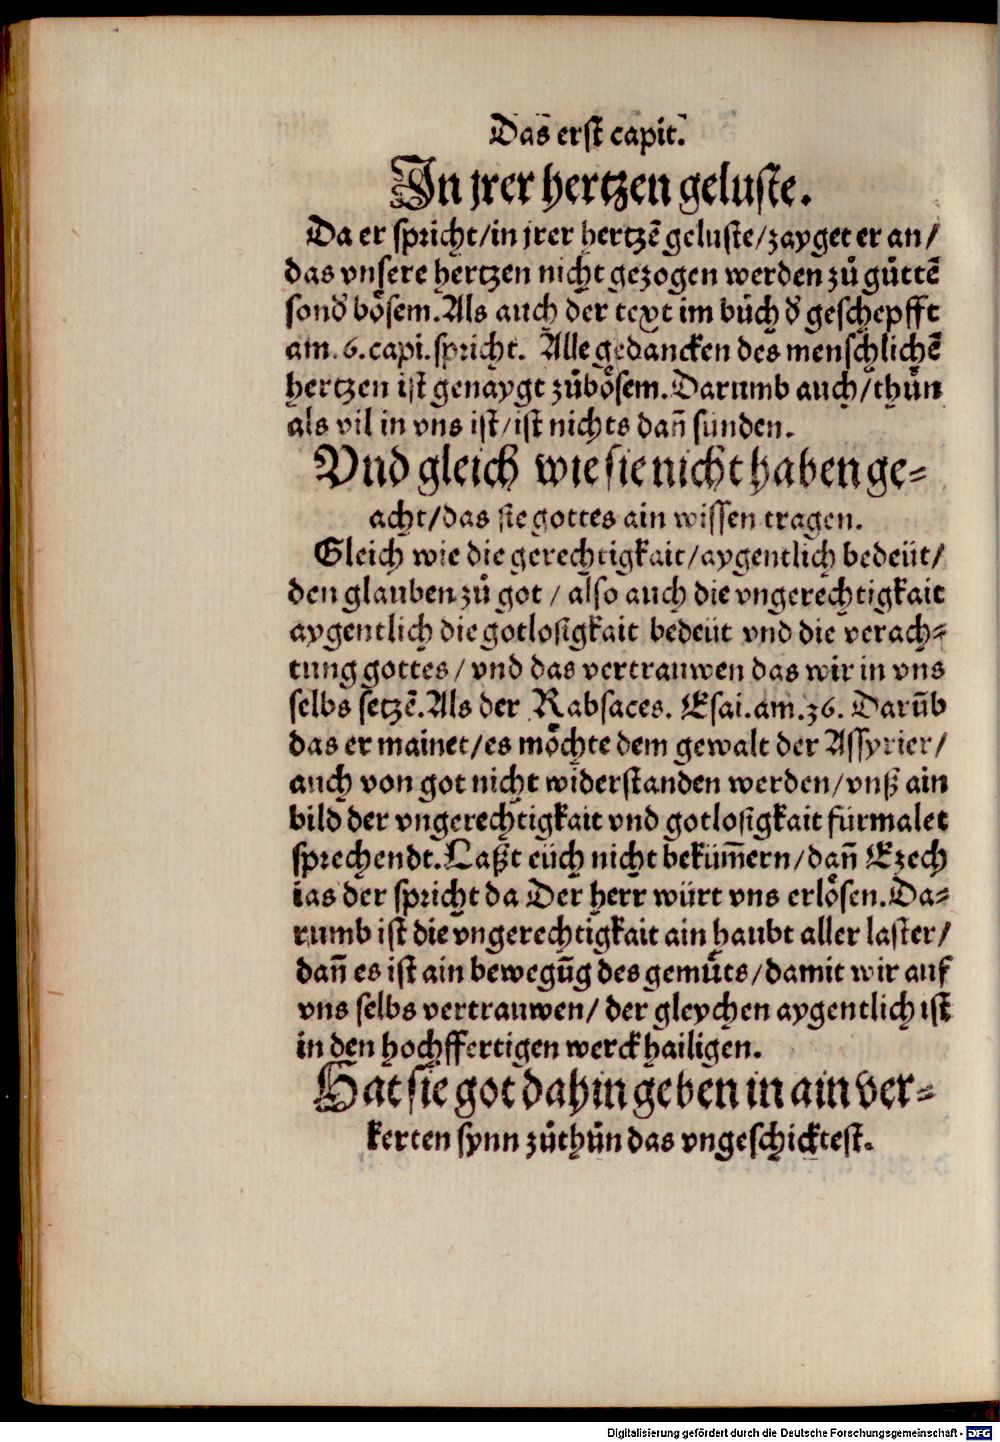 Das erst capit̃.
In jrer hertzen geluste.
Da er spricht/in jrer hertzẽ geluste/zayget er an/
das vnsere hertzen nicht gezogen werden zů gůttẽ
sond̕ bo̊sem. Als auch der text im bůch d̕ geschepfft
am .6. capi. spricht. Alle gedancken des menschlichẽ
hertzen ist genaygt zůbo̊sem. Darumb auch/thůn
als vil in vns ist/ist nichts dañ sunden.
Vnd gleich wie sie nicht haben ge-
acht/das sie gottes ain wissen tragen.
Gleich wie die gerechtigkait/aygentlich bedeüt/
den glauben zů got / also auch die vngerechtigkait
aygentlich die gotlosigkait bedeüt vnd die verach-
tung gottes / vnd das vertrauwen das wir in vns
selbs setzẽ. Als der Rabsaces. Esai. am. 36. Darũb
das er mainet/es mo̊chte dem gewalt der Assyrier/
auch von got nicht widerstanden werden/vnß ain
bild der vngerechtigkait vnd gotlosigkait fürmalet
sprechendt. Laßt eüch nicht beküm̃ern/dañ Ezech
ias der spricht da Der herr würt vns erlo̊sen. Da-
rumb ist die vngerechtigkait ain haubt aller laster/
dañ es ist ain bewegũg des gemůts/damit wir auf
vns selbs vertrauwen/ der gleychen aygentlich ist
in den hochffertigen werckhailigen.
Hat sie got dahin geben in ain ver-
kerten synn zůthůn das vngeschicktest.
Digitalisierung gefördert durch die Deutsche Forschungsgemeinschaft - DFG